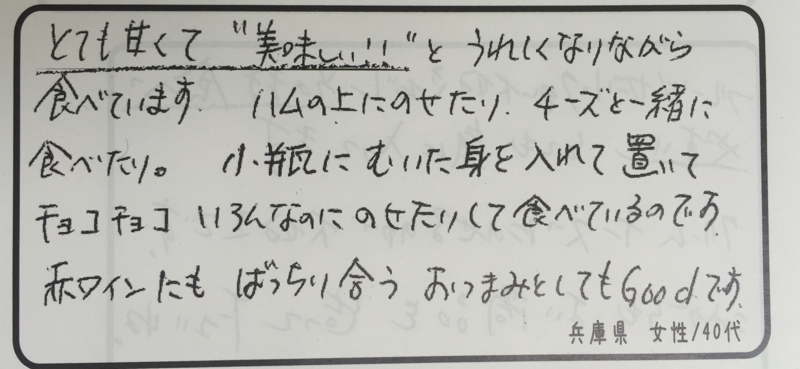 とても甘くて "美味しい!!"と うれしくなりながら
食べています。 ハムの上にのせたり、チーズと一緒に
食べたり。 小瓶に むいた身を入れて置いて
チョコチョコ いろんなのにのせたりして食べているのです。
赤ワインにも ばっちり合う おつまみとしてもGoodです。
兵庫県 女性/40代